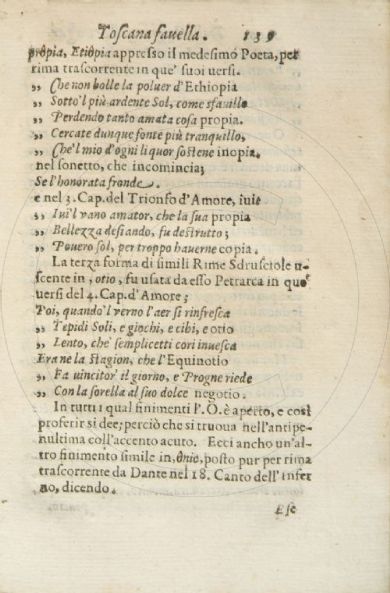 Toscana favella. 139
propia, Etiopia appresso il medesimo Poeta, per
rima trascorrente in que' suoi uersi.
„ Che non bolle la poluer d'Ethiopia
„ Sotto'l più ardente Sol, come sfauillo
„ Perdendo tanto amata cosa propia.
„ Cercate dunque fonte più tranquillo,
„ Che'l mio d'ogni liquor sostene inopia,
nel sonetto, che incomincia;
Se l'honorata fronde.
e nel 3. Cap. del Trionfo d'Amore, iui:
„ Iui'l vano amator, che la sua propia
„ Bellezza desiando, fu destrutto;
„ Pouero sol, per troppo hauerne copia.
La terza forma di simili Rime Sdrusciole u-
scente in, otio, fu usata da esso Petrarca in que'
uersi del 4. Cap. d'Amore;
Poi, quando'l verno l'aer si rinfresca
„ Tepidi Soli, e giochi, e cibi, e otio
„ Lento, che' semplicetti cori inuesca
Era ne la stagion, che l'Equinotio
„ Fa uincitor il giorno, e Progne riede
„ Con la sorella al suo dolce negotio.
In tutti i qual finimenti l'.O. è aperto, e così
proferir si dee; perciò che si truoua nell'antipe-
nultima coll'accento acuto. Ecci anchò un'al-
tro finimento simile in, onio, posto pur per rima
trascorrente da Dante nel 18. Canto dell'Infer
no, dicendo.
Ese